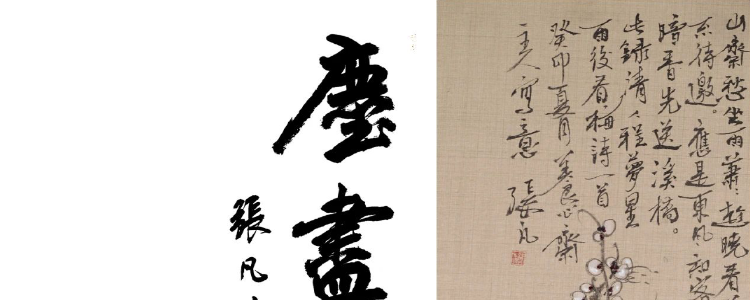 塵盡
張凡
山齋愁坐雨蕭蕭趁曉看
不待邀。應是東風知客
暗香先送溪橋。
此錄清人程夢星
雨後看梅詩一首
癸卯夏月良心齋
主人寫意 張凡